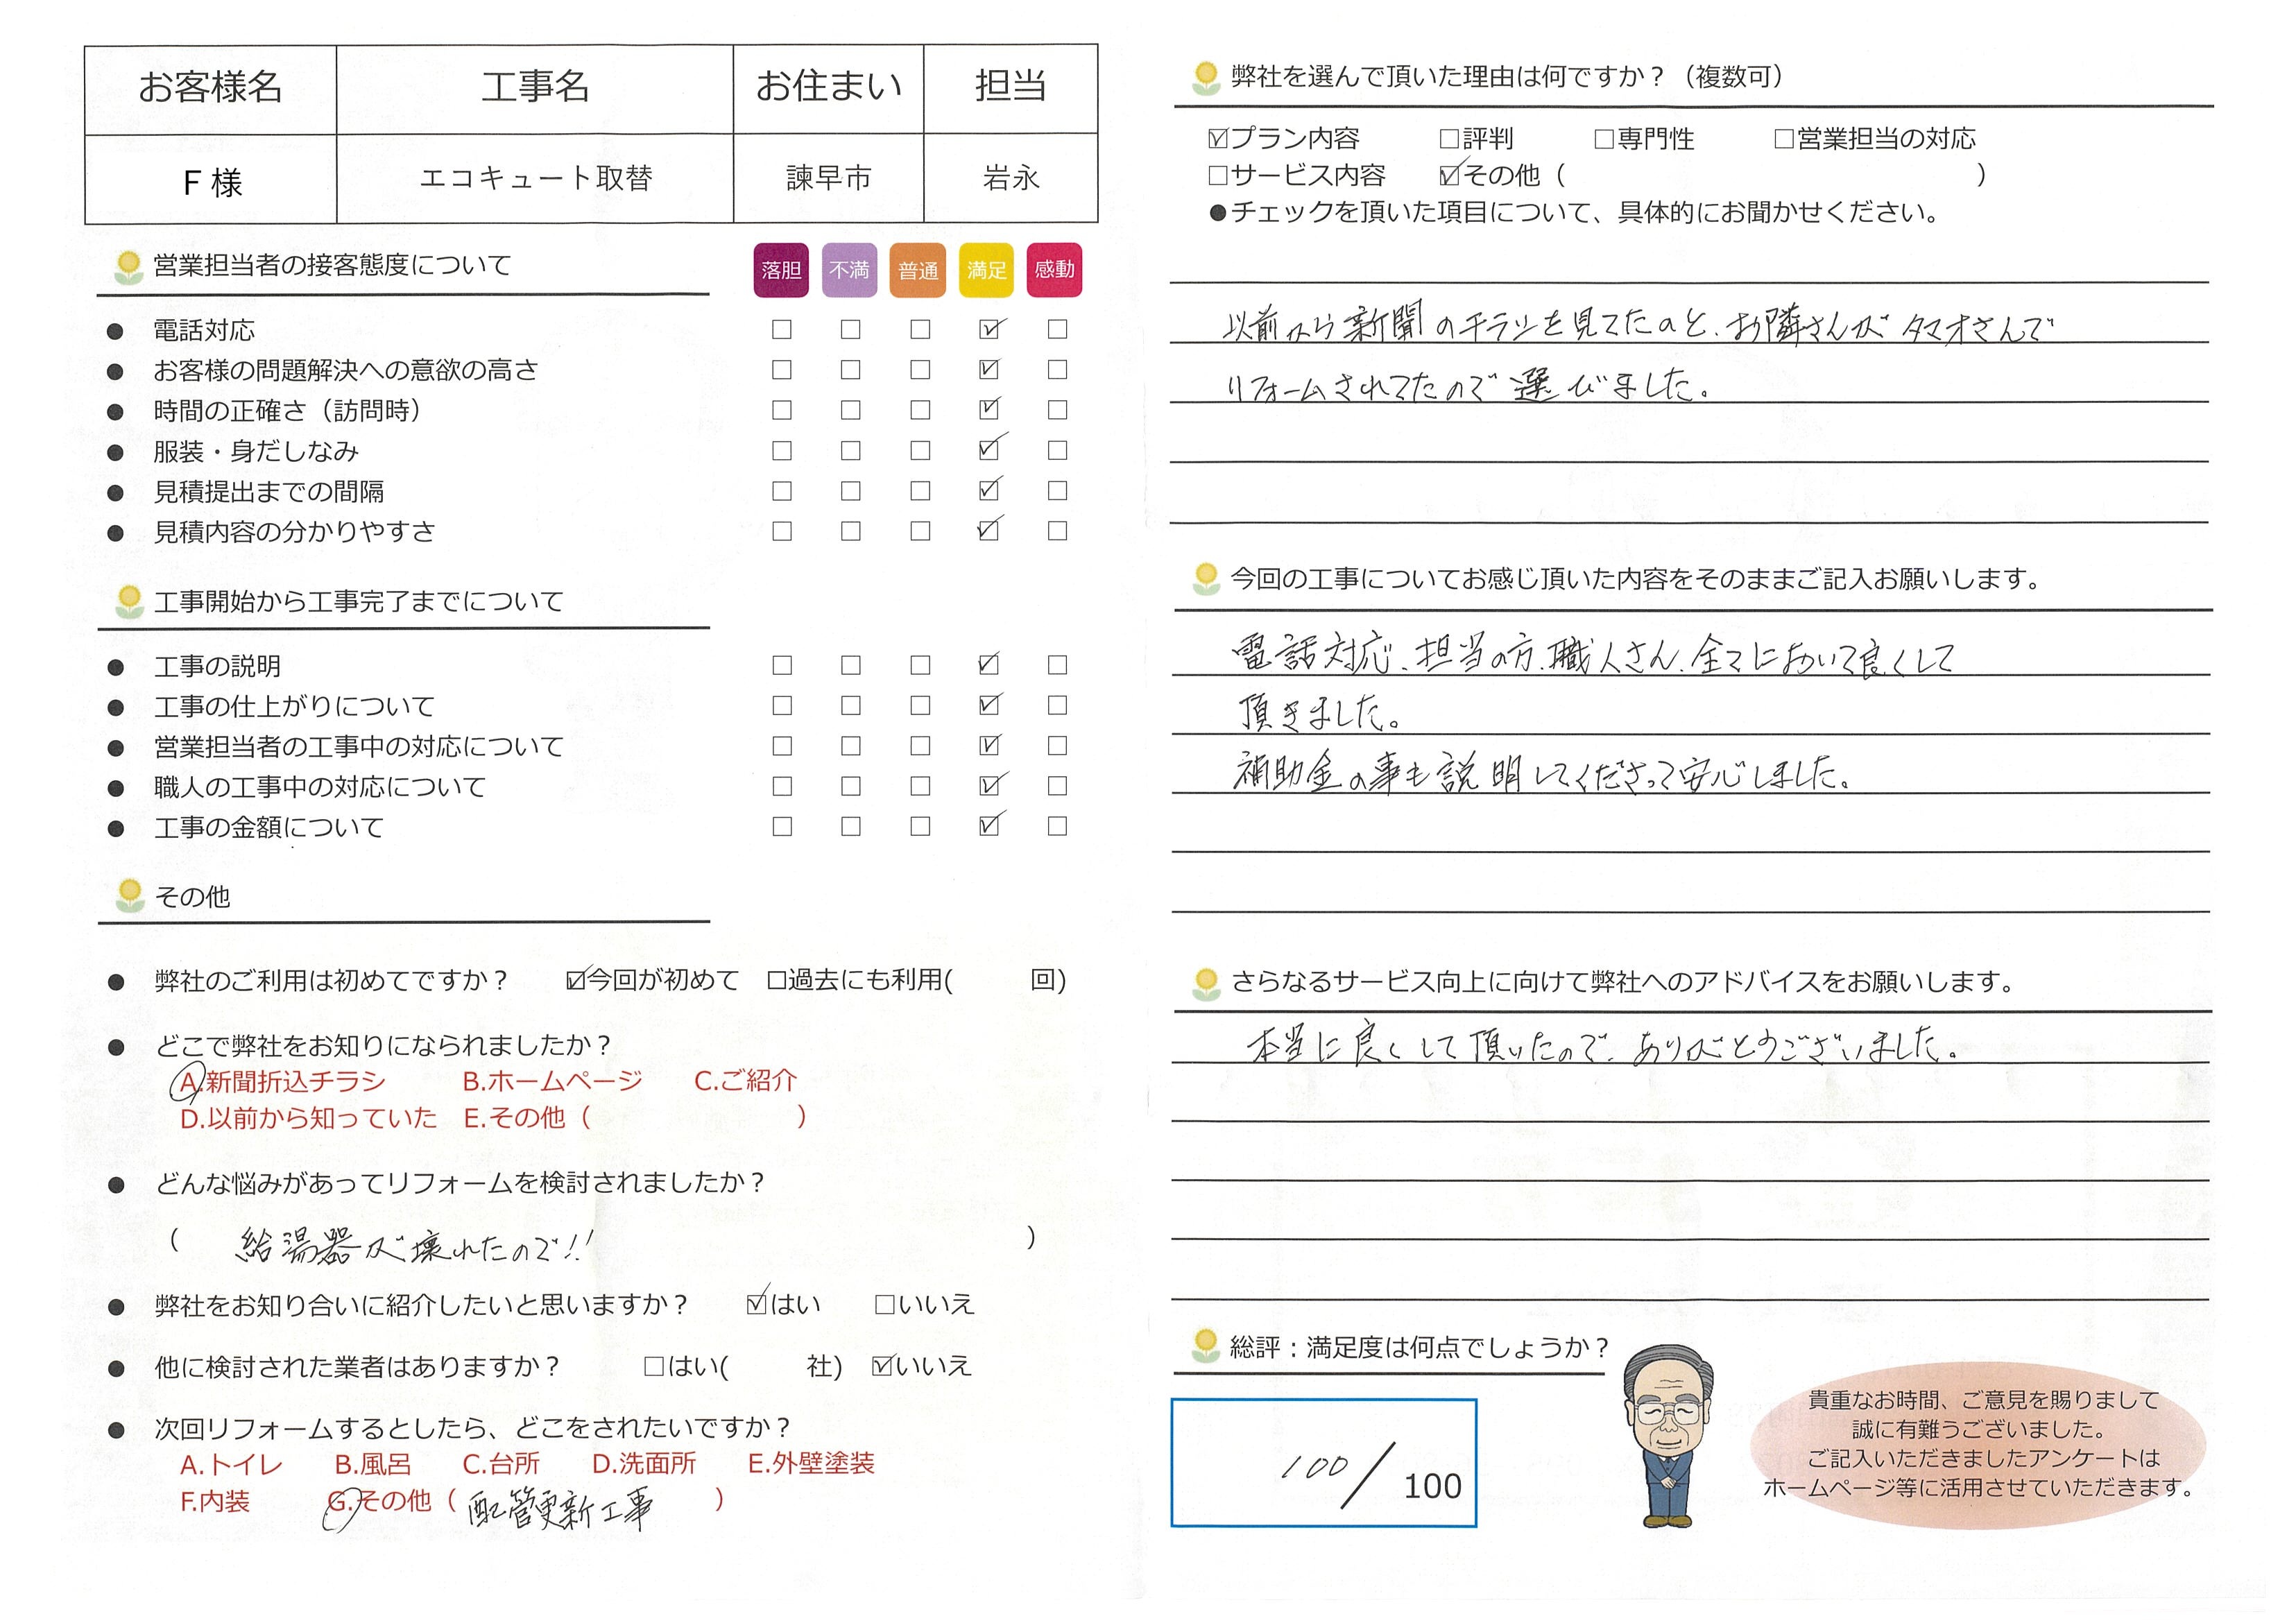 お客様名 工事名 お住まい 担当
F様 エコキュート取替 諫早市 岩永
営業担当者の接客態度について 落胆 不満 普通 満足 感動
● 電話対応 □ □ □ ☑ □
● お客様の問題解決への意欲の高さ □ □ □ ☑ □
● 時間の正確さ（訪問時） □ □ □ ☑ □
● 服装・身だしなみ □ □ □ ☑ □
● 見積提出までの間隔 □ □ □ ☑ □
● 見積内容の分かりやすさ □ □ □ ☑ □
工事開始から工事完了までについて
● 工事の説明 □ □ □ ☑ □
● 工事の仕上がりについて □ □ □ ☑ □
● 営業担当者の工事中の対応について □ □ □ ☑ □
● 職人の工事中の対応について □ □ □ ☑ □
● 工事の金額について □ □ □ ☑ □
その他
● 弊社のご利用は初めてですか？ ☑今回が初めて □過去にも利用( 回)
● どこで弊社をお知りになられましたか？
A.新聞折込チラシ B.ホームページ C.ご紹介
D.以前から知っていた E.その他（ ）
● どんな悩みがあってリフォームを検討されましたか？
( 給湯器が壊れたので!! )
● 弊社をお知り合いに紹介したいと思いますか？ ☑はい □いいえ
● 他に検討された業者はありますか？ □はい( 社) ☑いいえ
● 次回リフォームするとしたら、どこをされたいですか？
A.トイレ B.風呂 C.台所 D.洗面所 E.外壁塗装
F.内装 G.その他（ 配管更新工事 ）
弊社を選んで頂いた理由は何ですか？（複数可）
☑プラン内容 □評判 □専門性 □営業担当の対応
□サービス内容 ☑その他（ ）
●チェックを頂いた項目について、具体的にお聞かせください。
以前から新聞のチラシを見てたのと、お隣さんがタマオさんで
リフォームされてたので選びました。
今回の工事についてお感じ頂いた内容をそのままご記入お願いします。
電話対応、担当の方、職人さん、全てにおいて良くして
頂きました。
補助金の事も説明してくださって安心しました。
さらなるサービス向上に向けて弊社へのアドバイスをお願いします。
本当に良くして頂いたので、ありがとうございました。
総評：満足度は何点でしょうか？
100/100
貴重なお時間、ご意見を賜りまして
誠に有難うございました。
ご記入いただきましたアンケートは
ホームページ等に活用させていただきます。